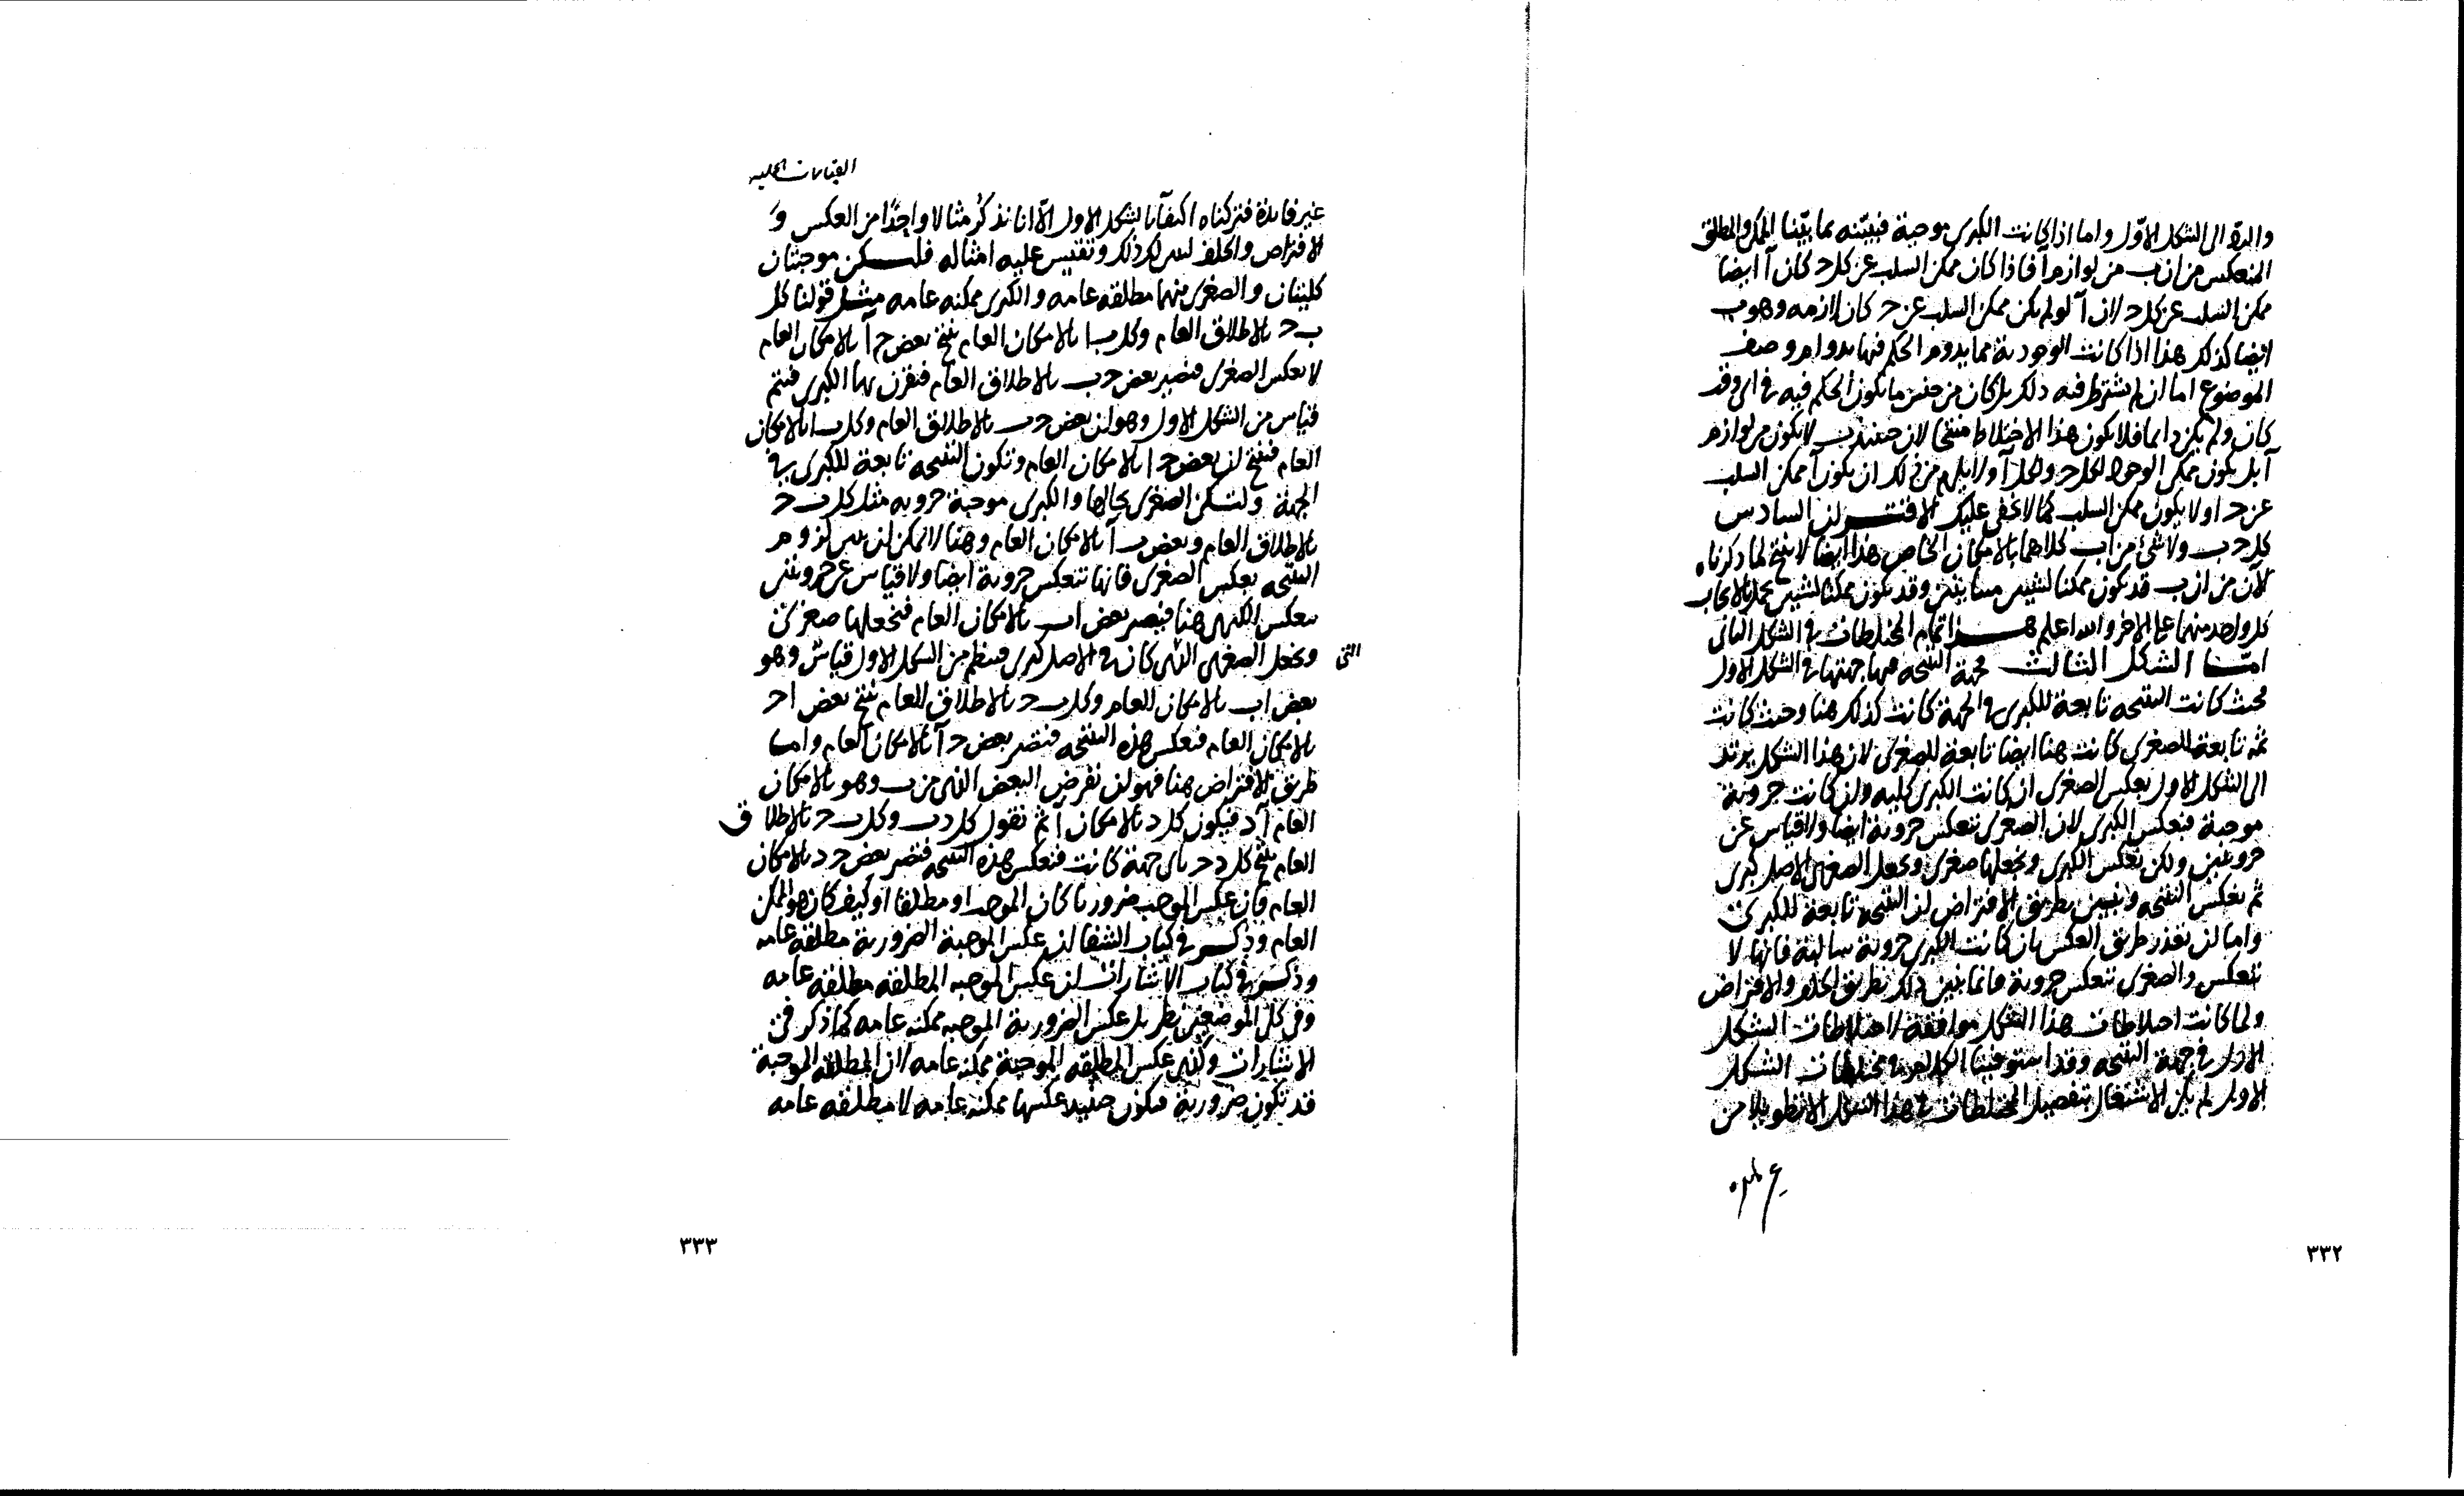 والرد الى الشكل الاول واما اذا كانت الكبرى موجبة فبينه بما بينا الممكن والمطلق
المنعكس من ان ب من لوازم ا فاذا كان ممكن السلب عن كل ح كان آ ايضا
ممكن السلب عن كل ح لان آ لو لم يكن ممكن السلب عن ح كان لازمه وهو ب
ايضا كذلك هذا اذا كانت الوجودية مما يدوم الحكم فيها بدوام وصف
الموضوع اما ان لم يشترط فيه ذلك بل كان من جنس ما يكون الحكم فيه في اى وقت
كان ولم يكن دايما فلا يكون هذا الاختلاط منتجا لان حينئذ ب لا يكون من لوازم
آ بل يكون ممكن الوجود لكل ح ولكل آ ولا يلزم من ذلك ان يكون آ ممكن السلب
عن ح او لا يكون ممكن السلب كما لا يخفى عليك الاقتران السادس
كل ح ب ولا شئ من اب كلاهما بالامكان الخاص هذا ايضا لا ينتج لما ذكرناه
الآن من ان ب قد يكون ممكنا لشيئين متباينين وقد يكون ممكنا لشيئين يحمل بالايجاب
كل واحد منهما على الاخر والله اعلم هذا تمام المختلطات في الشكل الثانى
امّا الشكل الثالث فجهة النتيجة فيها جهتها في الشكل الاول
فحيث كانت النتيجه تابعة للكبرى في الجهة كانت كذلك هنا وحيث كانت
ثمة تابعة للصغرى كانت هنا ايضا تابعة للصغرى لان هذا الشكل يرتد
الى الشكل الاول بعكس الصغرى ان كانت الكبرى كليه وان كانت جزوية
موجبة فبعكس الكبرى لان الصغرى تنعكس جزوية ايضا ولا قياس عن
جزويتين ولكن تعكس الكبرى وتجعلها صغرى وتجعل الصغرى في الاصل كبرى
ثم تعكس النتيجه وتبين بطريق الافتراض ان النتيجه تابعة للكبرى
واما ان تعذر طريق العكس بان كانت الكبرى جزوية سالبة فانها لا
تنعكس والصغرى تنعكس جزوية فانما يتبين ذلك بطريق الخلف والافتراض
ولما كانت اختلاطات هذا الشكل موافقة لاختلاطات الشكل
الاول في جهة النتيجه وقد استوفينا الكلام في مختلطات الشكل
الاول لم يكن الاشتغال بتفصيل المختلطات في هذا الشكل الا تطويلا من
٣٣٢
القياسات الحملية
غير فايدة فتركناه اكتفآ بالشكل الاول الّا انا نذكر مثالا واحدًا من العكس و
الافتراض والخلف ليس لك ذلك وتقيس عليه امثاله فلتكن موجبتان
كليتان والصغرى منهما مطلقة عامه والكبرى ممكنه عامه مثل قولنا كل
ب ح بالاطلاق العام وكل ب ا بالامكان العام ينتج بعض ح آ بالامكان العام
لا بعكس الصغرى فتصير بعض ح ب بالاطلاق العام فنقرن بها الكبرى فيتم
قياس من الشكل الاول وهو ان بعض ح ب بالاطلاق العام وكل ب ا بالامكان
العام فينتج ان بعض ح ا بالامكان العام وتكون النتيجه تابعة للكبرى في
الجهة ولتكن الصغرى بحالها والكبرى موجبة جزويه مثل كل ب ح
بالاطلاق العام وبعض ب آ بالامكان العام وهنا لا يمكن ان يبين لزوم
النتيجه بعكس الصغرى فانها تنعكس جزوية ايضا ولا قياس عن جزويتين
بعكس الكبرى هنا فيصير بعض اب بالامكان العام فنجعلها صغرى
ونجعل الصغرى التى كان في الاصل كبرى فينظم من الشكل الاول قياس وهو
التى
بعض اب بالامكان العام وكل ب ح بالاطلاق العام ينتج بعض ا ح
بالامكان العام فنعكس هذه النتيجه فتصير بعض ح آ بالامكان العام واما
طريق الافتراض هنا فهو ان نفرض البعض الذى من ب وهو بالامكان
العام آ د فيكون كل د بالامكان آ ثم نقول كل د ب وكل ب ح بالاطلاق
العام ينتج كل د ح باى جهة كانت فنعكس هذه النتيجه فتصير بعض ح د بالامكان
العام فان عكس الموجب ضروريا كان الموجب او مطلقا او كيف كان هو الممكن
العام وذكر في كتاب الشفا ان عكس الموجبة الضرورية مطلقة عامه
وذكر في كتاب الاشارات ان عكس الموجبه المطلقه مطلقة عامه
وفي كلى الموضعين نظر بل عكس الضرورية الموجبه ممكنه عامه كما ذكر في
الاشارات وكذى عكس المطلقه الموجبة ممكنه عامه لان المطلقة الموجبة
قد تكون ضرورية فيكون حينئذ عكسها ممكنه عامه لا مطلقه عامه
٣٣٣